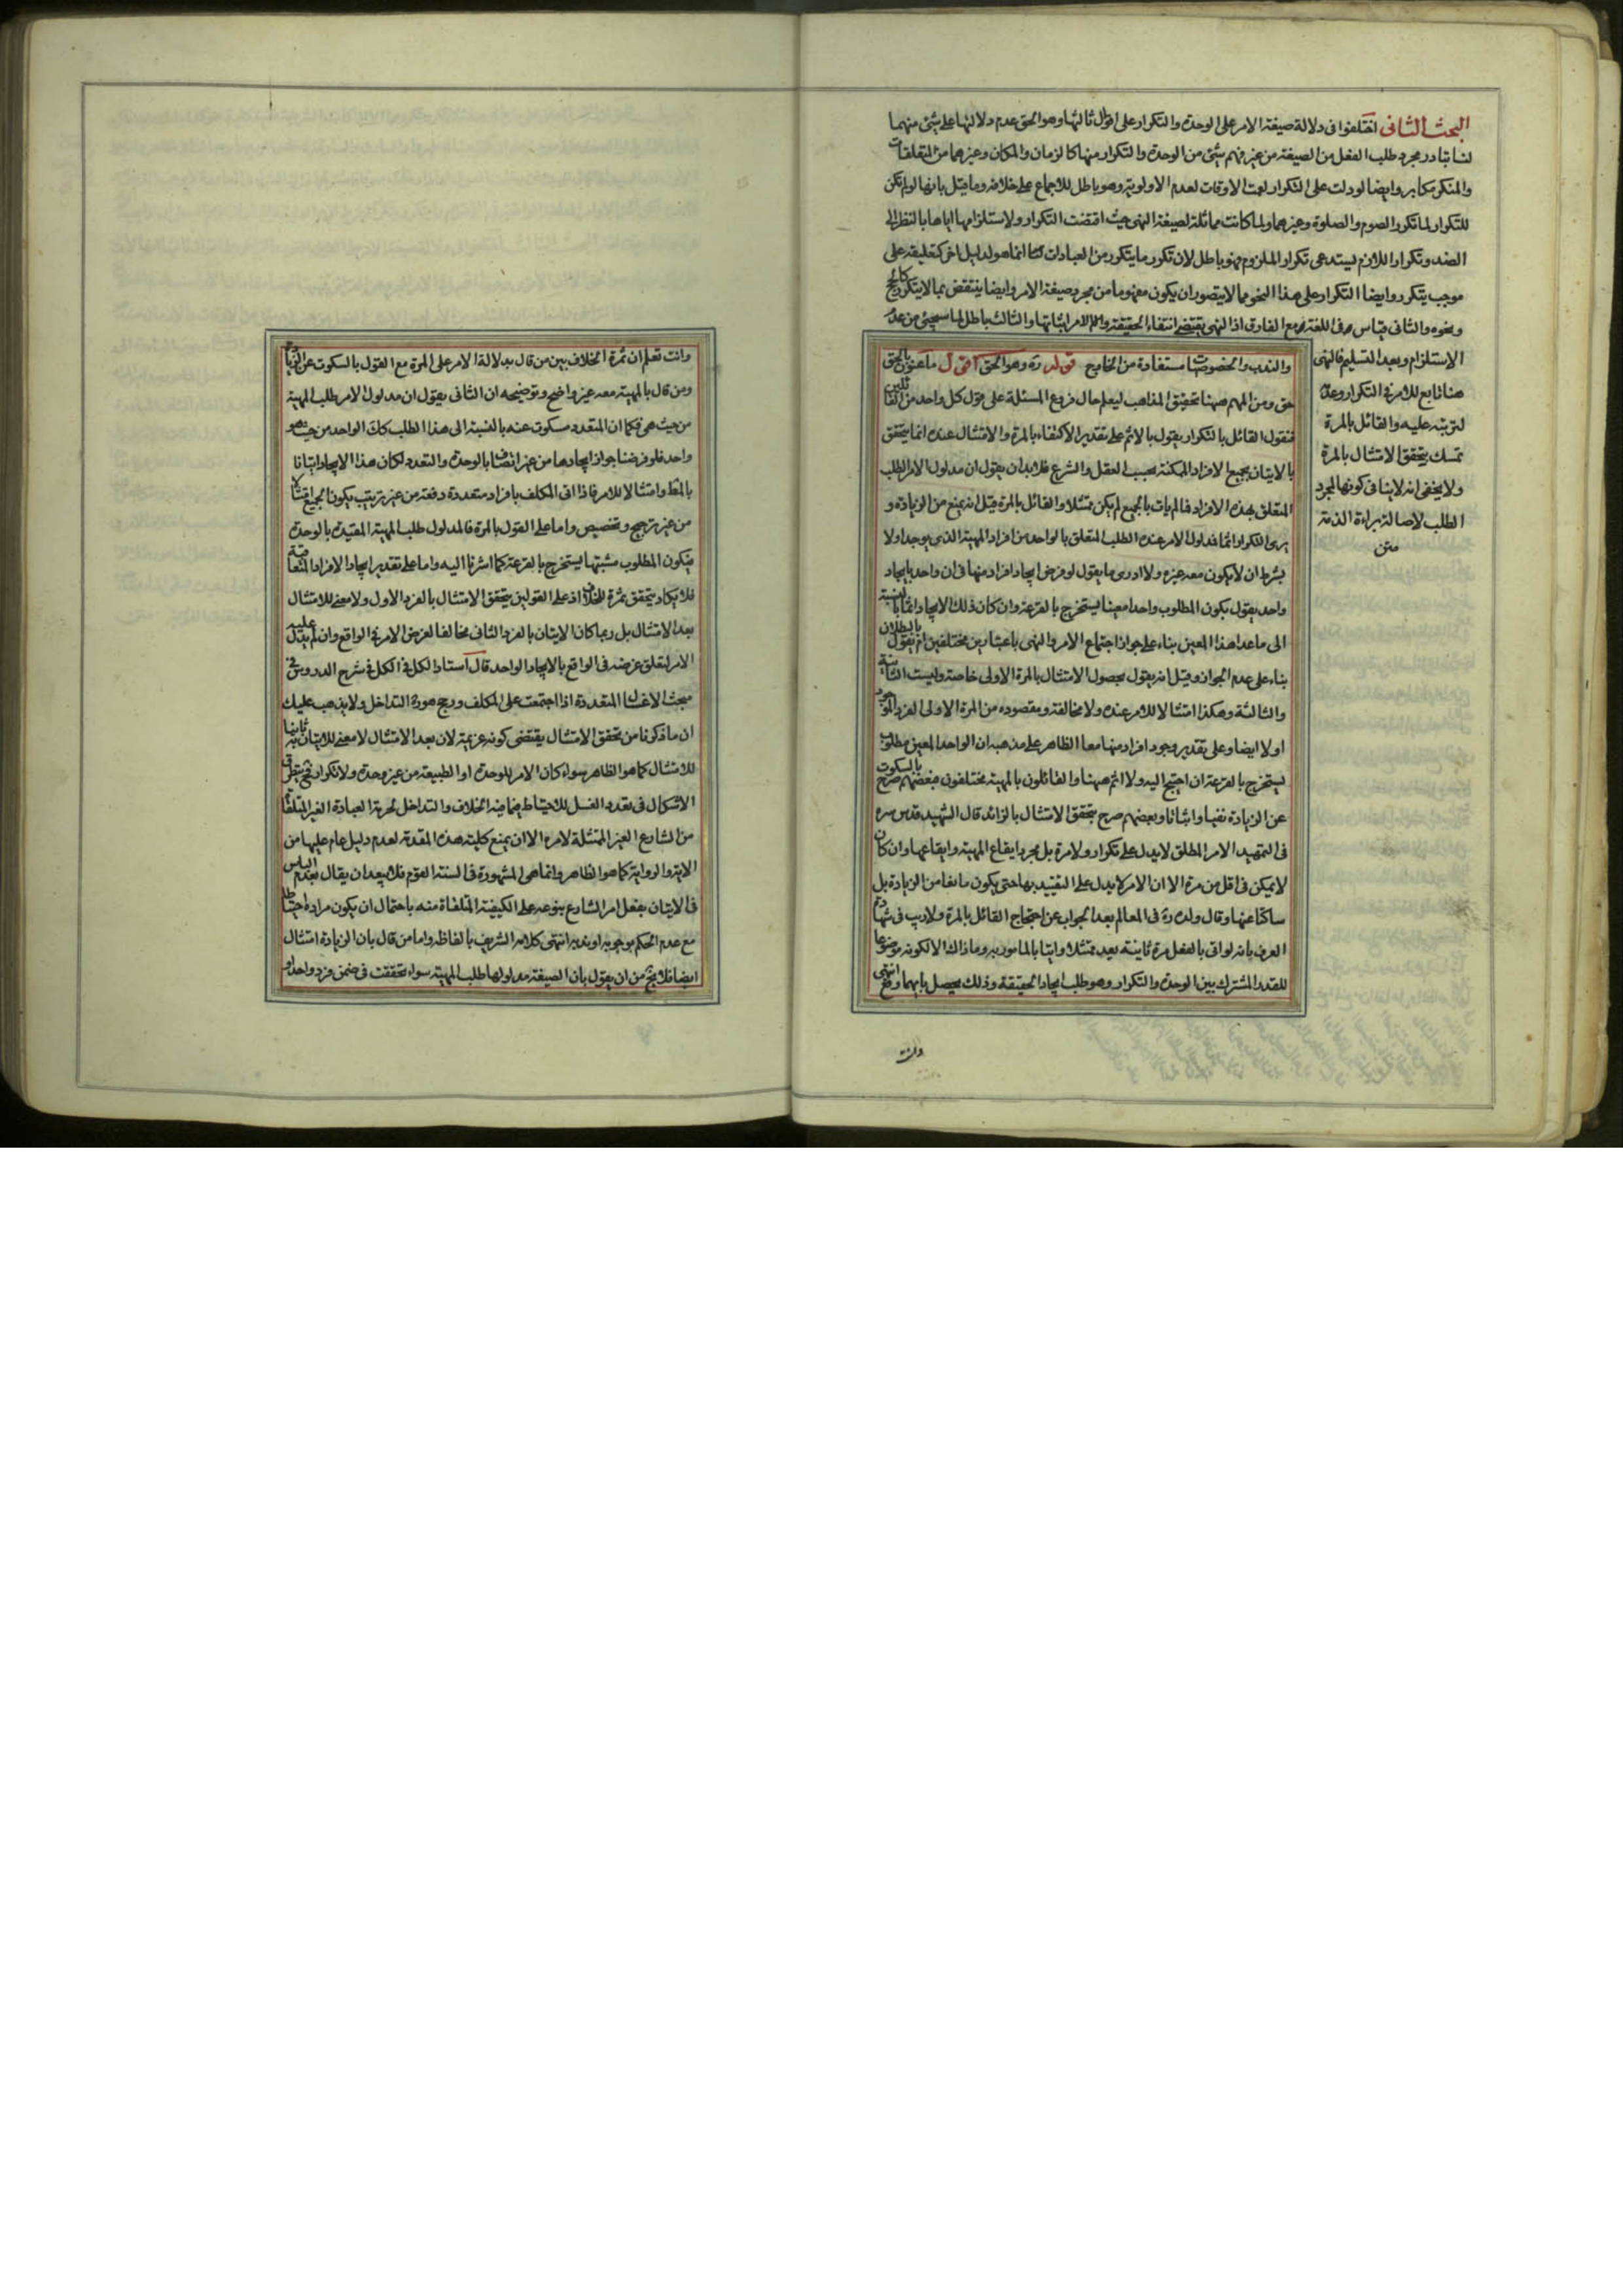 البحث الثانى اختلفوا فى دلالة صيغة الامر على الوحدة والتكرار على اقوال ثالثها وهو الحق عدم دلالتها على شئ منهما
لنا تبادر مجرد طلب الفعل من الصيغة من غير فهم شئ من الوحدة والتكرار منها كالزمان والمكان وغيرهما من المتعلقات
والمنكر مكابر وايضا لو دلت على التكرار لعمت الاوقات لعدم الاولوية وهو باطل للاجماع على خلافه وما قيل بانها لو لم تكن
للتكرار لما تكرر الصوم والصلوة وغيرهما ولما كانت مماثلة لصيغة النهى حيث اقتضت التكرار ولاستلزامها اياها بالنظر الى
الضد وتكرار اللازم يستدعى تكرار الملزوم فهو باطل لان تكرر ما يتكرر من العبادات انما هو لدليل اخر كتعليقه على
موجب يتكرر وايضا التكرار على هذا النحو مما لا يتصور ان يكون مفهوما من مجرد صيغة الامر وايضا ينتقض بما لا يتكرر كالحج
ونحوه والثانى قياس فى اللغة مع الفارق اذ النهى يقتضى انتفاء الحقيقة والامر اثباتها والثالث باطل لما سيجئ من عدم
الاستلزام وبعد التسليم فالنهى
هنا تابع للامر فى التكرار وعدمه
لترتبه عليه والقائل بالمرة
تمسك بتحقق الامتثال بالمرة
ولا يخفى انه لا ينافى كونها لمجرد
الطلب لاصالة براءة الذمة
متن
والندب والخصوصيات مستفادة من الخارج قوله ره وهو الحق اقول ما عنون بالحق
حق ومن المهم ههنا تحقيق المذاهب ليعلم حال فروع المسئلة على قول كل واحد من القائلين
فنقول القائل بالتكرار يقول بالاثم على تقدير الاكتفاء بالمرة والامتثال عنده انما يتحقق
بالاتيان بجميع الافراد الممكنة بحسب العقل والشرع فلابد ان يقول ان مدلول الامر الطلب
المتعلق بهذه الافراد فما لم يات بالجميع لم يكن ممتثلا والقائل بالمرة قيل انه يمنع من الزيادة و
يرى التكرار اثما فمدلول الامر عنده الطلب المتعلق بالواحد من افراد المهية الذى يوجد اولا
بشرط ان لا يكون معه غيره ولا ادرى ما يقول لو فرض ايجاد افراد منها فى ان واحد بايجاد
واحد يقول بكون المطلوب واحدا معينا يستخرج بالقرعة وان كان ذلك الايجاد اثما بالنسبة
الى ما عدا هذا المعين بناء على جواز اجتماع الامر والنهى باعتبارين مختلفين ام يقول بالبطلان
بناء على عدم الجواز وقيل انه يقول بحصول الامتثال بالمرة الاولى خاصة وليست الثانية
والثالثة وهكذا امتثالا للامر عنده ولا مخالفة ومقصوده من المرة الاولى الفرد الموجود
اولا ايضا وعلى تقدير وجود افراد منها معا الظاهر على مذهبه ان الواحد المعين مطلوب
يستخرج بالقرعة ان احتيج اليه ولا اثم ههنا والقائلون بالمهية مختلفون فبعضهم صرح بالسكوت
عن الزيادة نفيا واثباتا وبعضهم صرح بتحقق الامتثال بالزائد قال الشهيد قدس سره
فى التمهيد الامر المطلق لا يدل على تكرار ولا مرة بل مجرد ايقاع المهية وايقاعها وان كان
لا يمكن فى اقل من مرة الا ان الامر لا يدل على التقييد بها حتى يكون مانعا من الزيادة بل
ساكتا عنها وقال ولده ره فى المعالم بعد الجواب عن احتجاج القائل بالمرة ولا ريب فى شهادة
العرف بانه لو اتى بالفعل مرة ثانية يعد ممتثلا واتيا بالمامور به وما ذاك الا لكونه موضوعا
للقدر المشترك بين الوحدة والتكرار وهو طلب ايجاد الحقيقة وذلك يحصل بايهما وقع انتهى
وانت
وانت تعلم ان ثمرة الخلاف بين من قال بدلالة الامر على المرة مع القول بالسكوت عن الزيادة
ومن قال بالمهية معه غير واضح وتوضيحه ان الثانى يقول ان مدلول الامر طلب المهية
من حيث هى فكما ان المتعدد مسكوت عنه بالنسبة الى هذا الطلب كك الواحد من حيث هو
واحد فلو فرضنا جواز ايجادها من غير اتصاف بالوحدة والتعدد لكان هذا الايجاد اتيانا
بالمط وامتثالا للامر فاذا اتى المكلف بافراد متعددة دفعة من غير ترتيب يكون الجميع امتثالا
من غير ترجيح وتخصيص واما على القول بالمرة فالمدلول طلب المهية المقيدة بالوحدة
فيكون المطلوب مشتبها يستخرج بالقرعة كما اشرنا اليه واما على تقدير ايجاد الافراد المتعاقبة
فلا يكاد يتحقق ثمرة للخلاف اذ على القولين يتحقق الامتثال بالفرد الاول ولا معنى للامتثال
بعد الامتثال بل ربما كان الاتيان بالفرد الثانى مخالفا لغرض الامر فى الواقع وان لم يدل عليه
الامر لتعلق غرضه فى الواقع بالايجاد الواحد قال استاد الكل فى الكل فى شرح الدروس فى
مبحث الاغسال المتعددة اذا اجتمعت على المكلف ورجح صورة التداخل ولا يذهب عليك
ان ما ذكرنا من تحقق الامتثال يقتضى كونه عزيمة لان بعد الامتثال لا معنى للاتيان به ثانيا
للامتثال كما هو الظاهر سواء كان الامر للوحدة او الطبيعة من غير وحدة ولا تكرار فح يتطرق
الاشكال فى تعدد الغسل للاحتياط فيما فيه الخلاف والتداخل لحرمة العبادة الغير المتلقاة
من الشارع الغير الممتثلة لامره الا ان يمنع كلية هذه المقدمة لعدم دليل عام عليها من
الاية والرواية كما هو الظاهر وانما هى المشهورة فى السنة القوم فلا يبعد ان يقال بعدم الباس
فى الاتيان بفعل امر الشارع بنوعه على الكيفية المتلقاة منه باحتمال ان يكون مراده احتياطا
مع عدم الحكم بوجوبه او ندبه انتهى كلامه الشريف بالفاظه واما من قال بان الزيادة امتثال
ايضا فلا يخ من ان يقول بان الصيغة مدلولها طلب المهية سواء تحققت فى ضمن فرد واحد او